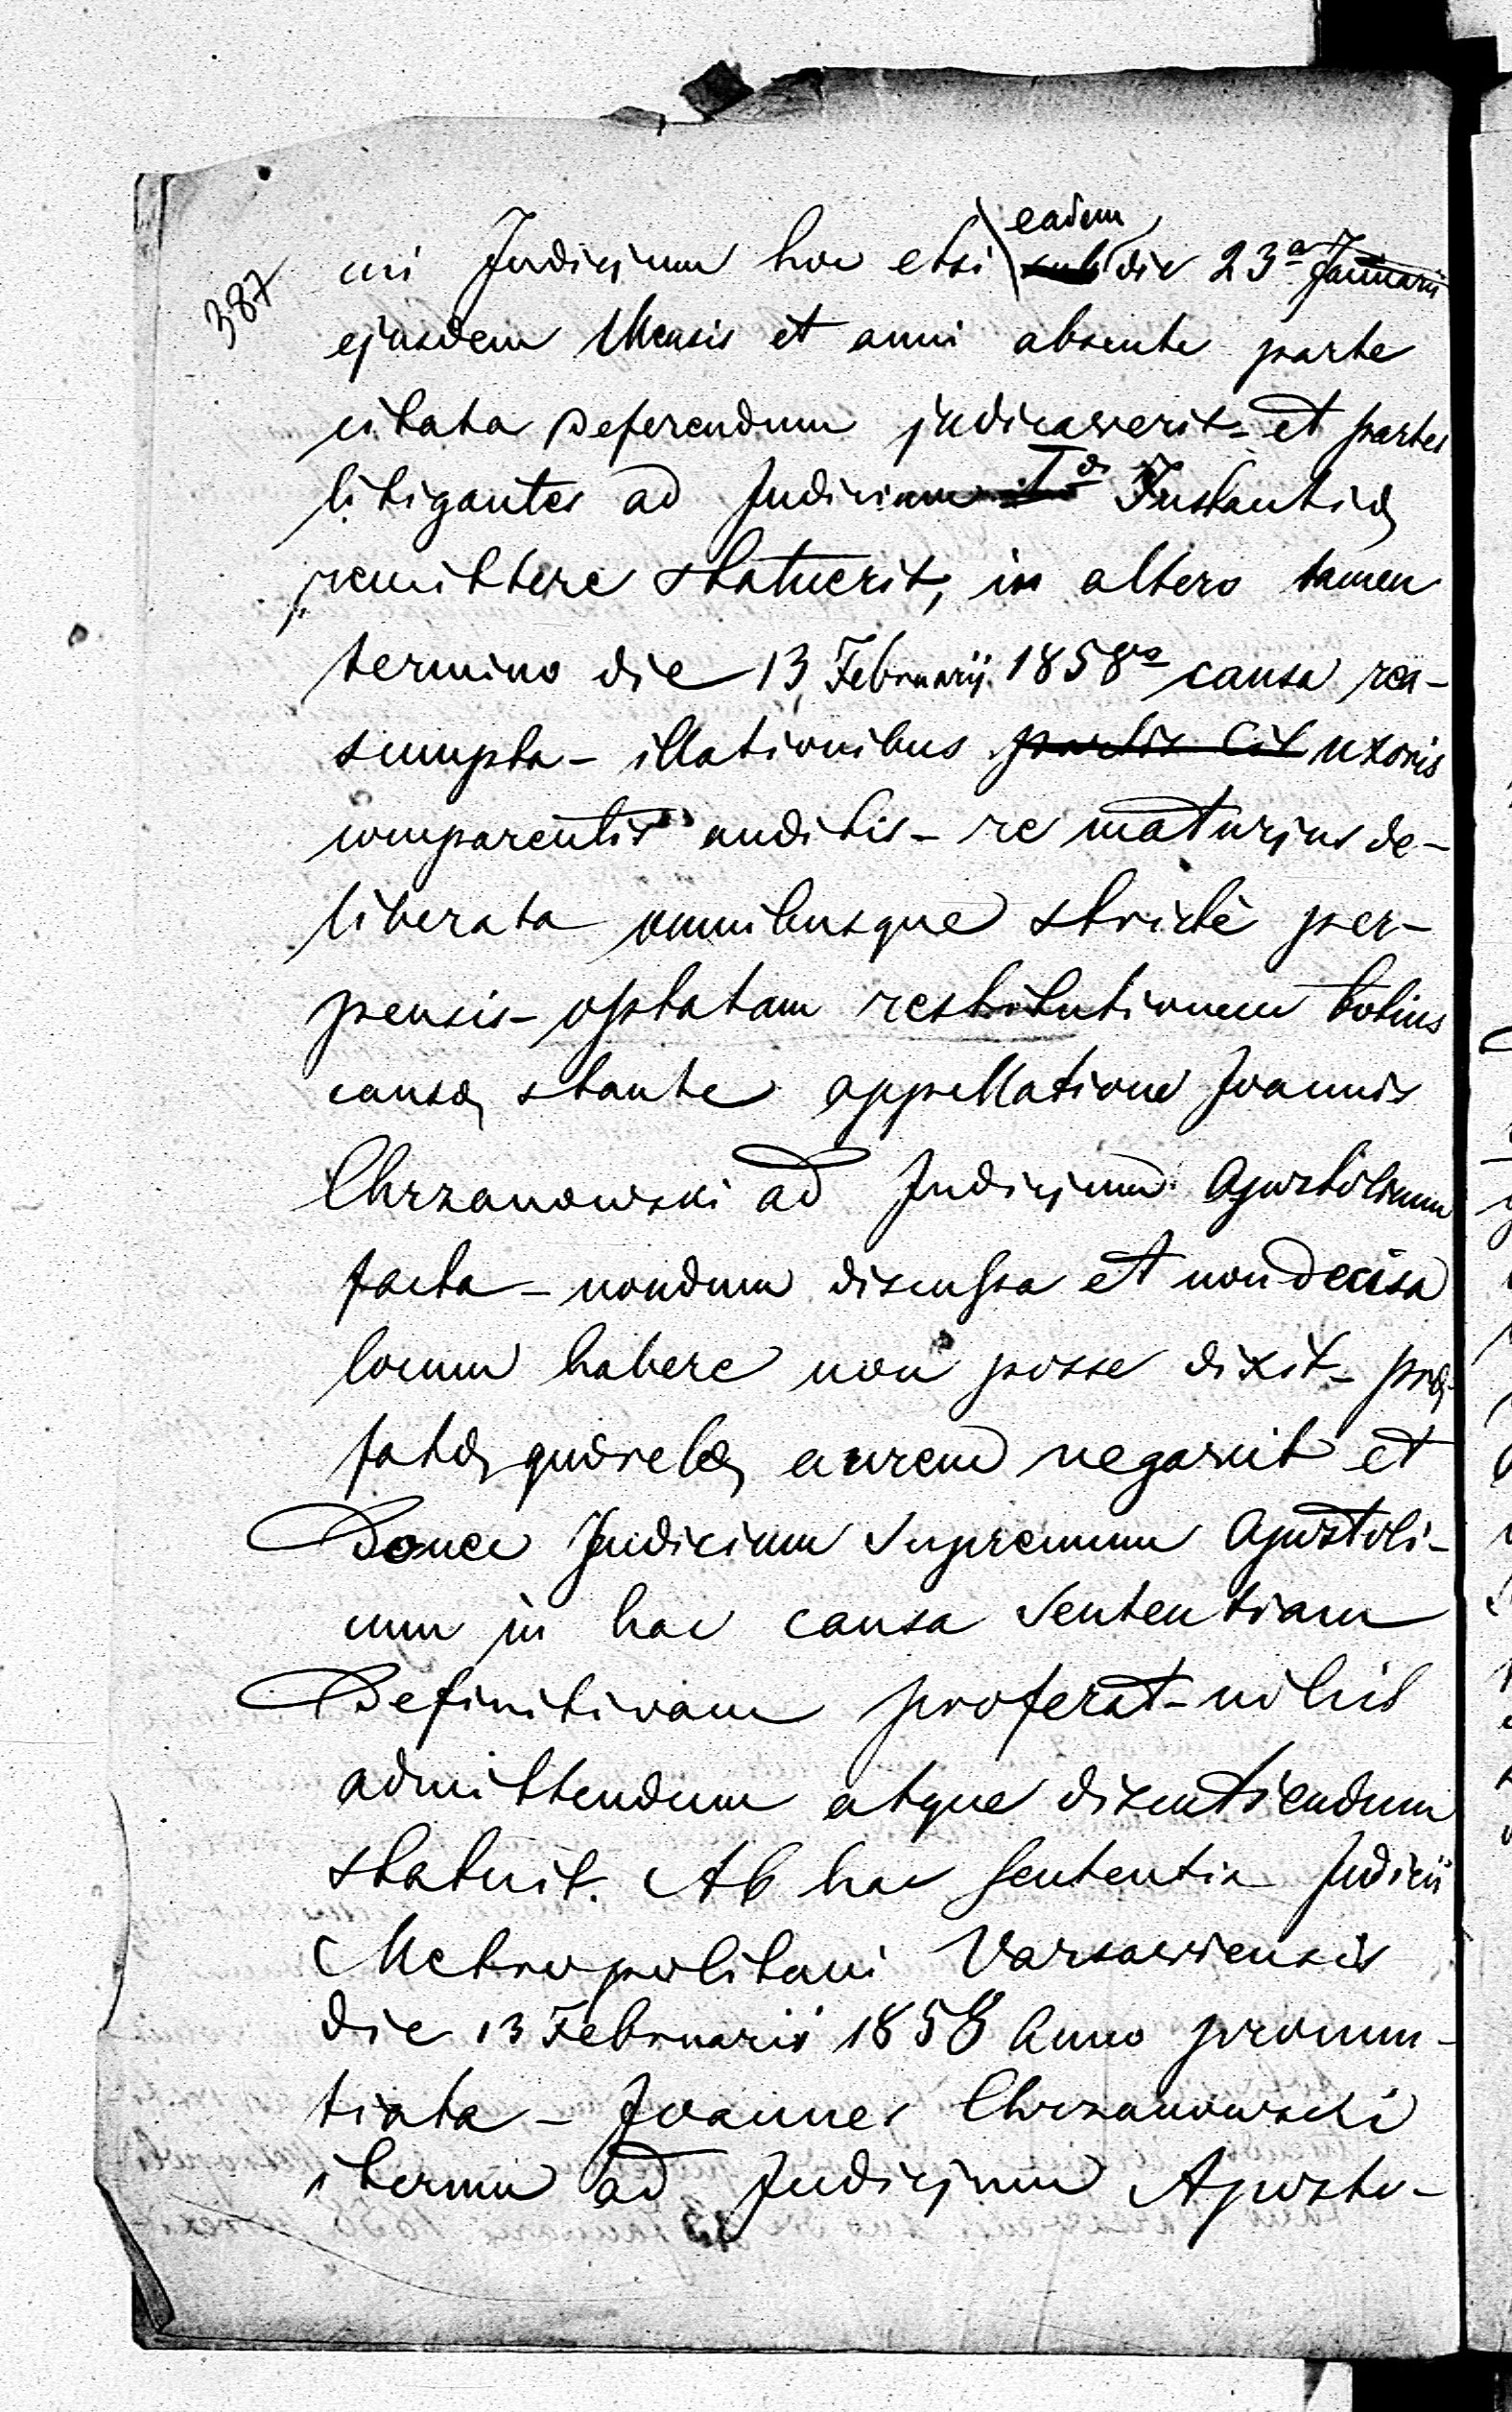 387
cui Judicjum hoc etsi eadem sub die 23ª Januarii
ejusdem Mensis et anni absente parte
citata deferendum judicaverit - et partes
litigantes ad Judicium Iæ Instantiæ
remittere statuerit, in altero tamen
termino die 13 Februarij 1858º causa rea-
sumpta - illationibus partis Cit uxoris
comparentis auditis - re maturjus de-
liberata omnibusque strictè per-
pensis - optatam restitutionem totius
causæ stante appellatione Joannis
Chrzanowski ad Judicjum Apostolicum
facta - nondum discussa et non decisa
locum habere non posse dixit - præ-
fatæ quærelæ aurem negavit et
Donec Judicium Supremum Apostoli-
cum in hac causa Sententiam
Definitivam proferat - nihil
admittendum atque discutiendum
statuit. Ab hac Sententia Judicii
Metropolitani Varsaviensis
die 13 Februarii 1858 Anno pronun-
tiata - Joannes Chrzanowski
iterum ad Judicjum Aposto-